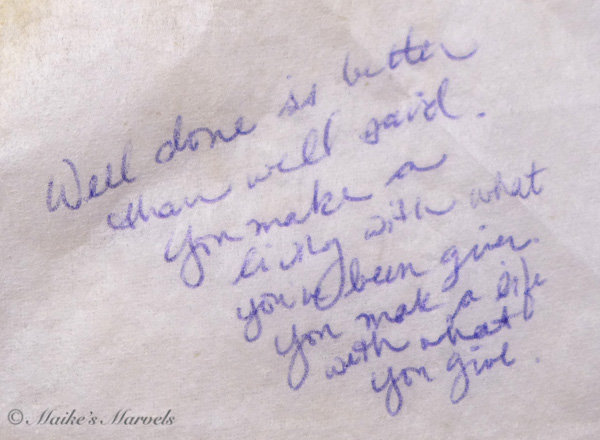 Well done is better
than well said.
You make a
living with what
you've been given.
You make a life
with what
you give.
© Maike's Marvels